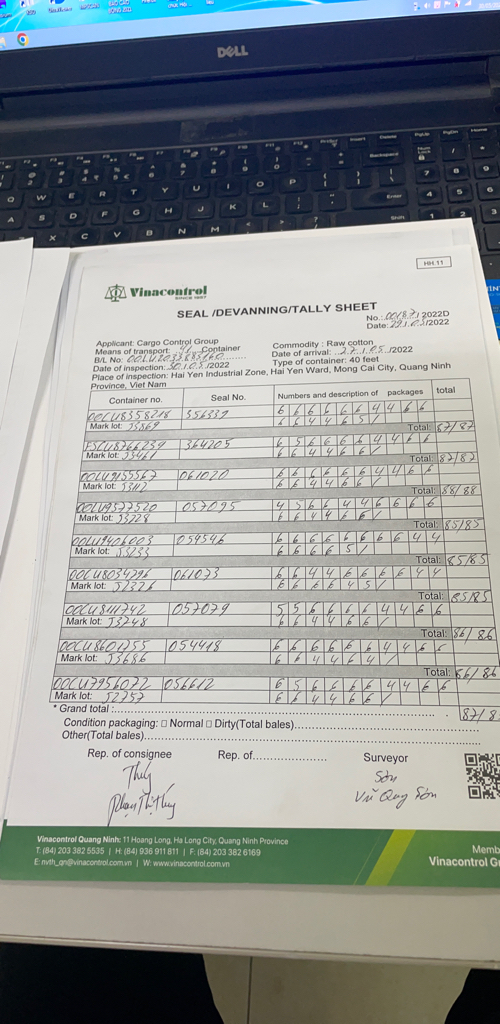 DELL
HH.11
Vinacontrol
SINCE 1957
SEAL /DEVANNING/TALLY SHEET
No.: 00187.1 2022D
Date: 29.1.05/2022
Applicant: Cargo Control Group
Commodity : Raw cotton
Means of transport: 41 Container
Date of arrival: 27.1.05 /2022
B/L No: OOLU2035883160
Type of container: 40 feet
Date of inspection: 30.1.05/2022
Place of inspection: Hai Yen Industrial Zone, Hai Yen Ward, Mong Cai City, Quang Ninh
Province, Viet Nam
Container no. Seal No. Numbers and description of packages total
OOLU8358218 356339 6 6 6 6 6 6 4 4 6 6
Mark lot: 6 6 4 4 6 5 /
Total: 87/87
364205 6 5 6 6 6 6 4 4 6 6
Mark lot: 6 6 4 4 6 6 /
Total: 87/87
OOLU9155567 061020 6 6 6 6 6 6 4 4 6 6
Mark lot: 6 6 4 4 6 6 /
Total: 88/88
OOLU9577520 057095
Mark lot: 53228 6 6 4 4 6 6 /
Total: 85/85
OOLU9406003 054546 6 6 6 6 6 6 6 6 4 4
Mark lot: 53233 6 6 6 6 5 /
Total: 85/85
OOLU8034296 061073 6 6 4 4 6 6 6 6 4 4
Mark lot: 52326 6 6 6 6 4 5 /
Total: 85/85
OOLU8111742 057079 5 5 6 6 6 6 4 4 6 6
Mark lot: 53248 6 6 4 4 6 6 /
Total: 86/86
OOLU8601255 054418 6 6 6 6 6 6 4 4 6 6
Mark lot: 53686 6 6 4 4 6 4 /
Total: 86/86
OOLU7956072 056612 6 5 6 6 6 6 4 4 6 6
Mark lot: 52757 6 6 4 4 6 6 /
* Grand total :
87/8
Condition packaging: □ Normal □ Dirty(Total bales)
Other(Total bales)
Rep. of consignee Rep. of Surveyor
Thúy Sơn
Phạm Thị Thúy Vũ Quang Sơn
Vinacontrol Quang Ninh: 11 Hoang Long, Ha Long City, Quang Ninh Province
T: (84) 203 382 5535 | H: (84) 936 911 811 | F: (84) 203 382 6169
E: nvth_qn@vinacontrol.com.vn | W: www.vinacontrol.com.vn
Memb
Vinacontrol G